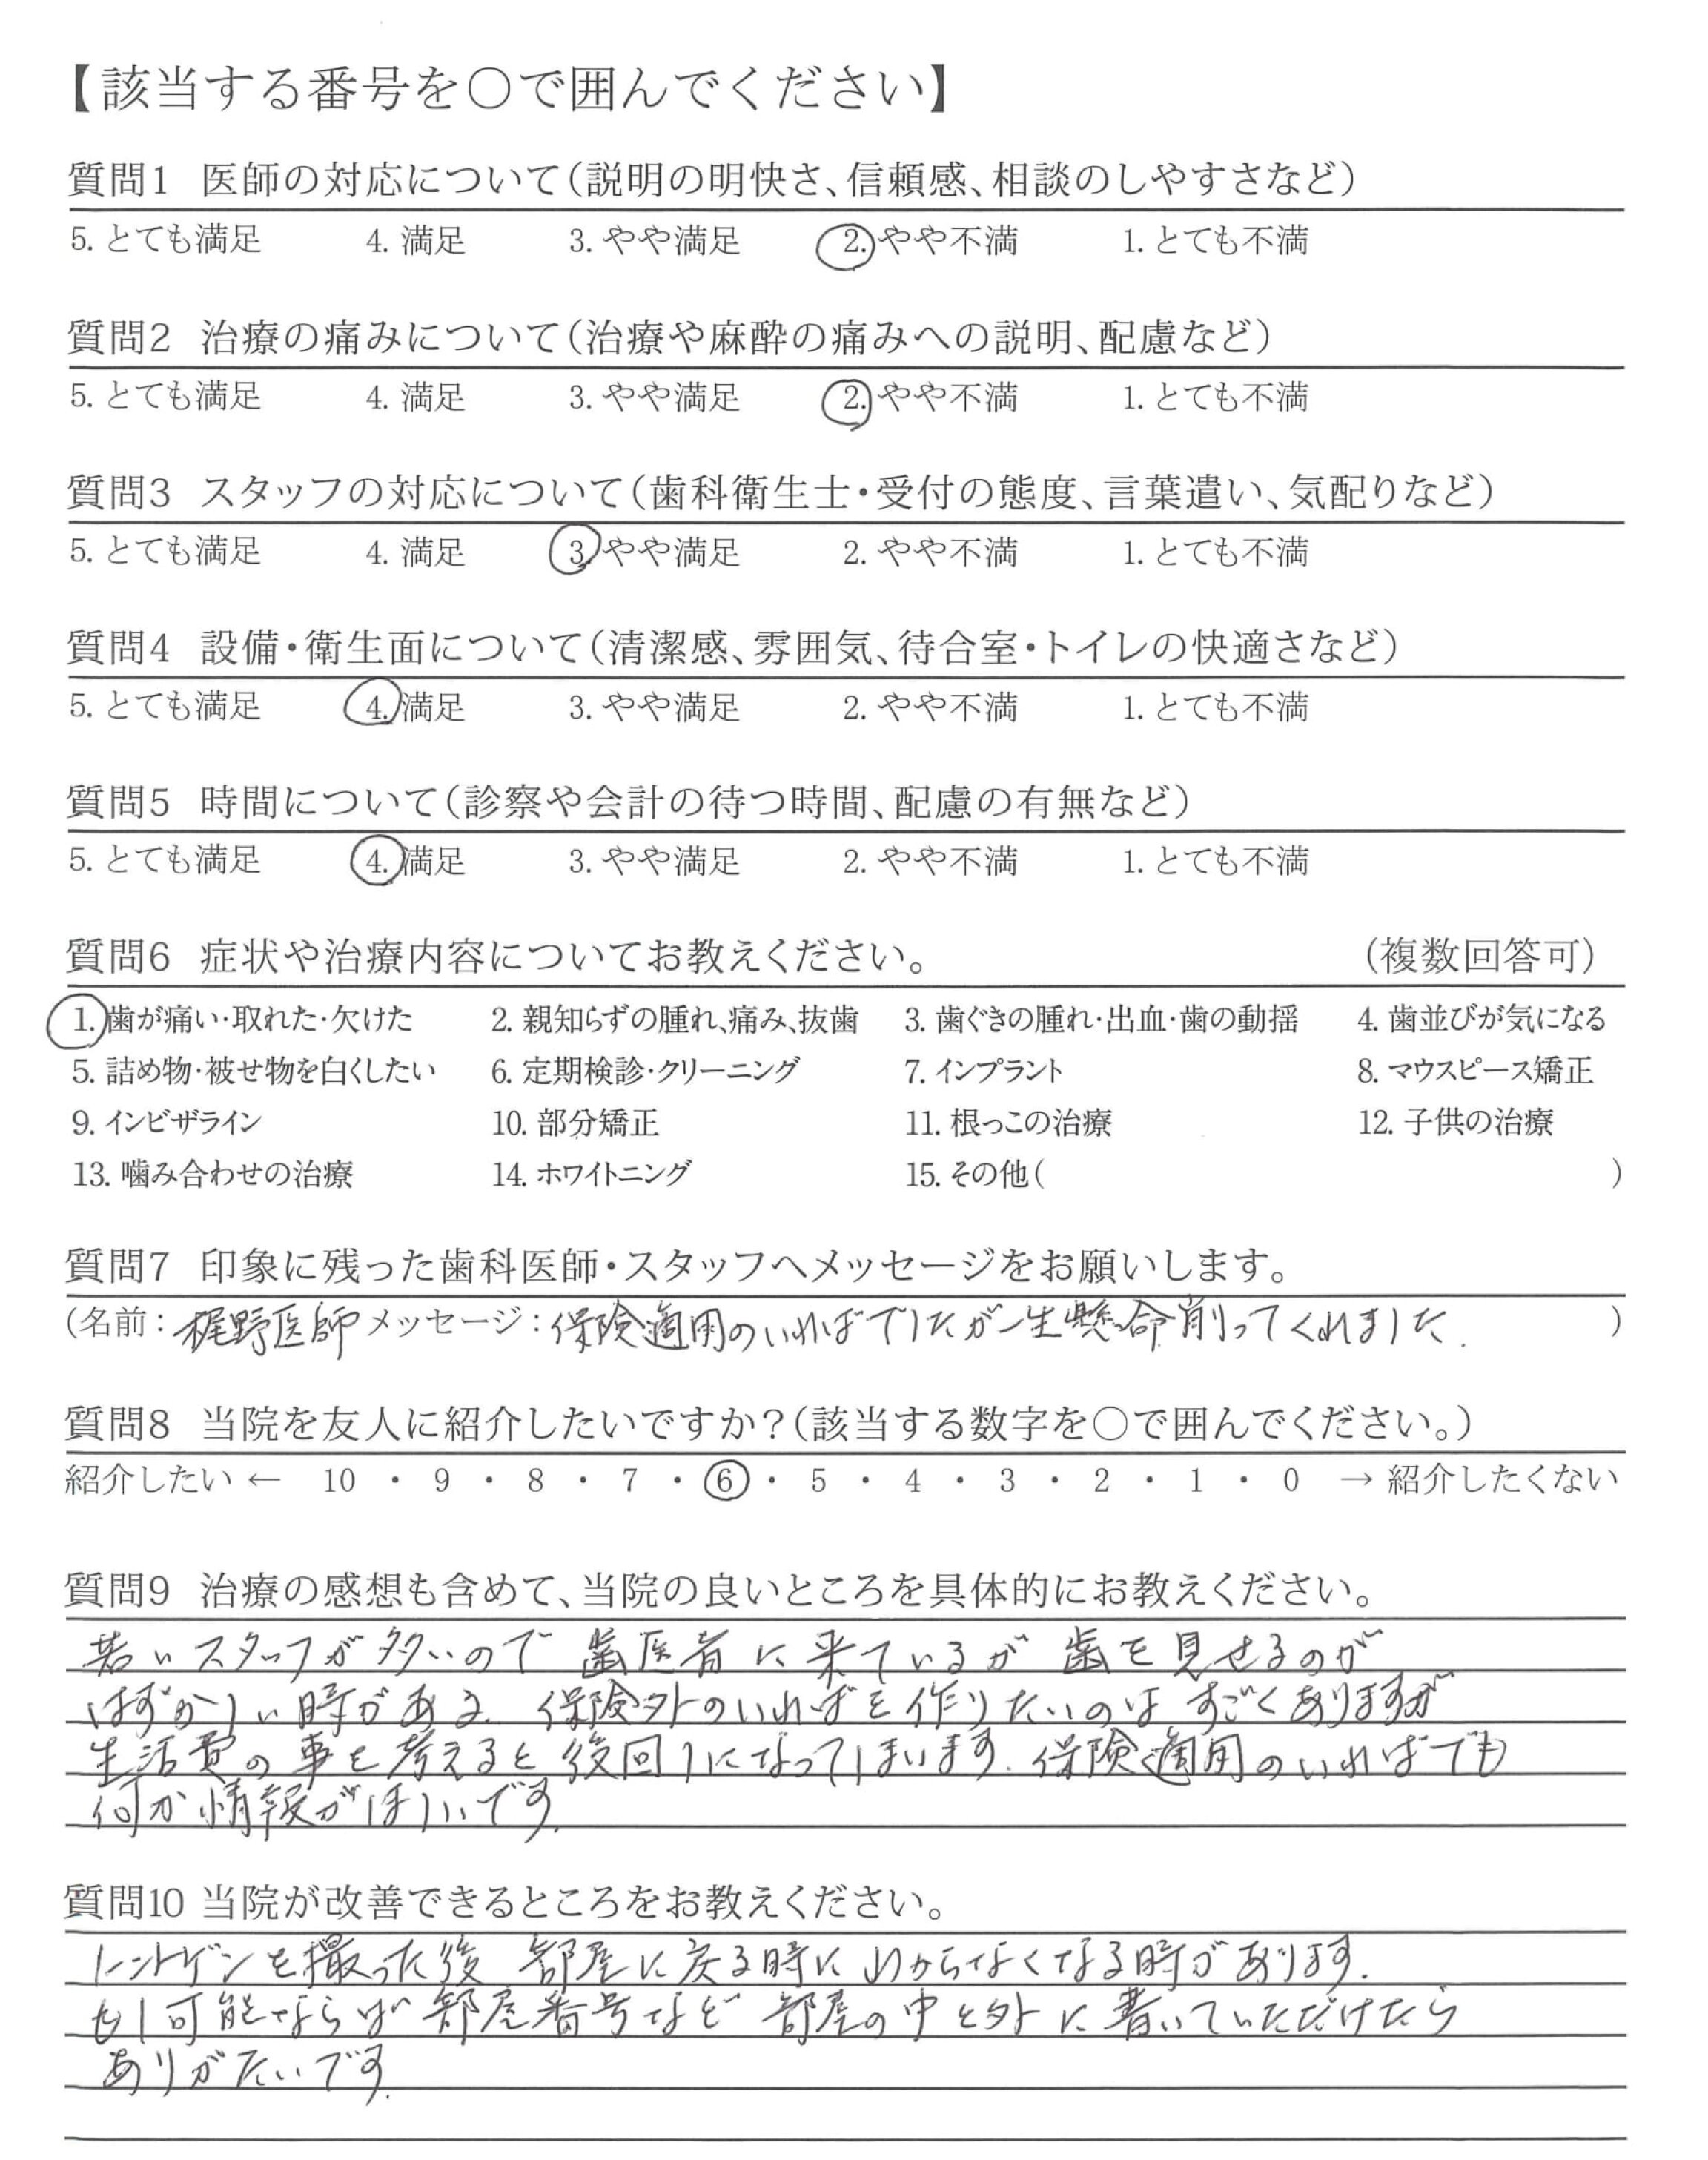 【該当する番号を○で囲んでください】
質問1 医師の対応について(説明の明快さ、信頼感、相談のしやすさなど)
5. とても満足 4. 満足 3. やや満足 2. やや不満 1. とても不満
質問2 治療の痛みについて(治療や麻酔の痛みへの説明、配慮など)
5. とても満足 4. 満足 3. やや満足 2. やや不満 1. とても不満
質問3 スタッフの対応について(歯科衛生士・受付の態度、言葉遣い、気配りなど)
5. とても満足 4. 満足 3. やや満足 2. やや不満 1. とても不満
質問4 設備・衛生面について(清潔感、雰囲気、待合室・トイレの快適さなど)
5. とても満足 4. 満足 3. やや満足 2. やや不満 1. とても不満
質問5 時間について(診察や会計の待つ時間、配慮の有無など)
5. とても満足 4. 満足 3. やや満足 2. やや不満 1. とても不満
質問6 症状や治療内容についてお教えください。 (複数回答可)
1. 歯が痛い・取れた・欠けた 2. 親知らずの腫れ、痛み、抜歯 3. 歯ぐきの腫れ・出血・歯の動揺 4. 歯並びが気になる
5. 詰め物・被せ物を白くしたい 6. 定期検診・クリーニング 7. インプラント 8. マウスピース矯正
9. インビザライン 10. 部分矯正 11. 根っこの治療 12. 子供の治療
13. 噛み合わせの治療 14. ホワイトニング 15. その他( )
質問7 印象に残った歯科医師・スタッフへメッセージをお願いします。
(名前: 梶野医師 メッセージ: 保険適用のいればでしたが一生懸命削ってくれました. )
質問8 当院を友人に紹介したいですか?(該当する数字を○で囲んでください。)
紹介したい ← 10 ・ 9 ・ 8 ・ 7 ・ 6 ・ 5 ・ 4 ・ 3 ・ 2 ・ 1 ・ 0 → 紹介したくない
質問9 治療の感想も含めて、当院の良いところを具体的にお教えください。
若いスタッフが多いので 歯医者に来ているが 歯を見せるのが
はずかしい時がある. 保険外のいればを作りたいのは すごくありますが
生活費の事を考えると後回しになってしまいます. 保険適用のいればでも
何か情報がほしいです.
質問10 当院が改善できるところをお教えください。
レントゲンを撮った後 部屋に戻る時にわからなくなる時があります.
もし可能ならば 部屋番号など 部屋の中と外に書いていただけたら
ありがたいです.